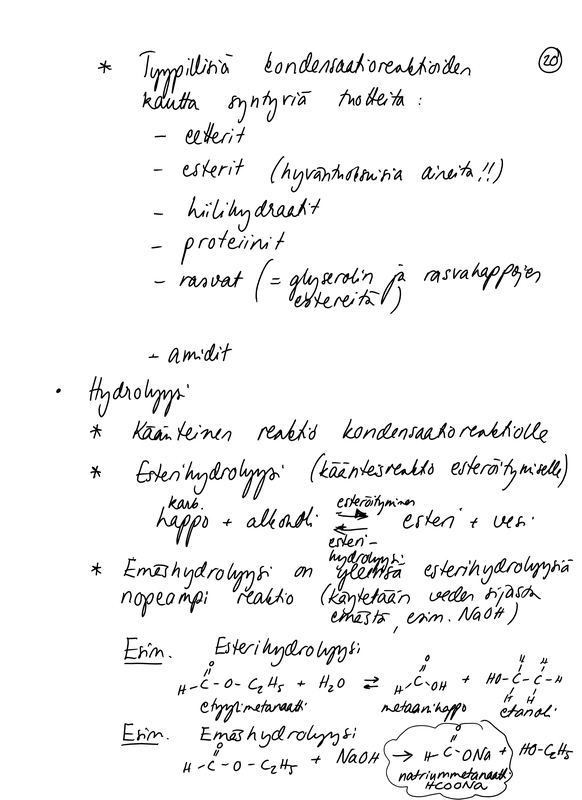 20
* Tyypillisiä kondensaatioreaktioiden
kautta syntyviä tuotteita :
- eetterit
- esterit (hyväntuoksuisia aineita!!)
- hiilihydraatit
- proteiinit
- rasvat (= glyserolin ja rasvahappojen
estereitä)
- amidit
• Hydrolyysi
* Käänteinen reaktio kondensaatioreaktiolle
* Esterihydrolyysi (käänteisreaktio esteröitymiselle)
karb.
happo + alkoholi ⇌ esteri + vesi
esteröityminen
esteri-
hydrolyysi
* Emäshydrolyysi on yleensä esterihydrolyysiä
nopeampi reaktio (käytetään veden sijasta
emästä, esim. NaOH)
Esim. Esterihydrolyysi
O O H H
H-C-O-C₂H₅ + H₂O ⇌ H-C-OH HO-C-C-H
H H
etyylimetanaatti metaanihappo etanoli
Esim. Emäshydrolyysi
O O
H-C-O-C₂H₅ + NaOH → H-C-ONa + HO-C₂H₅
natriummetanaatti
HCOONa